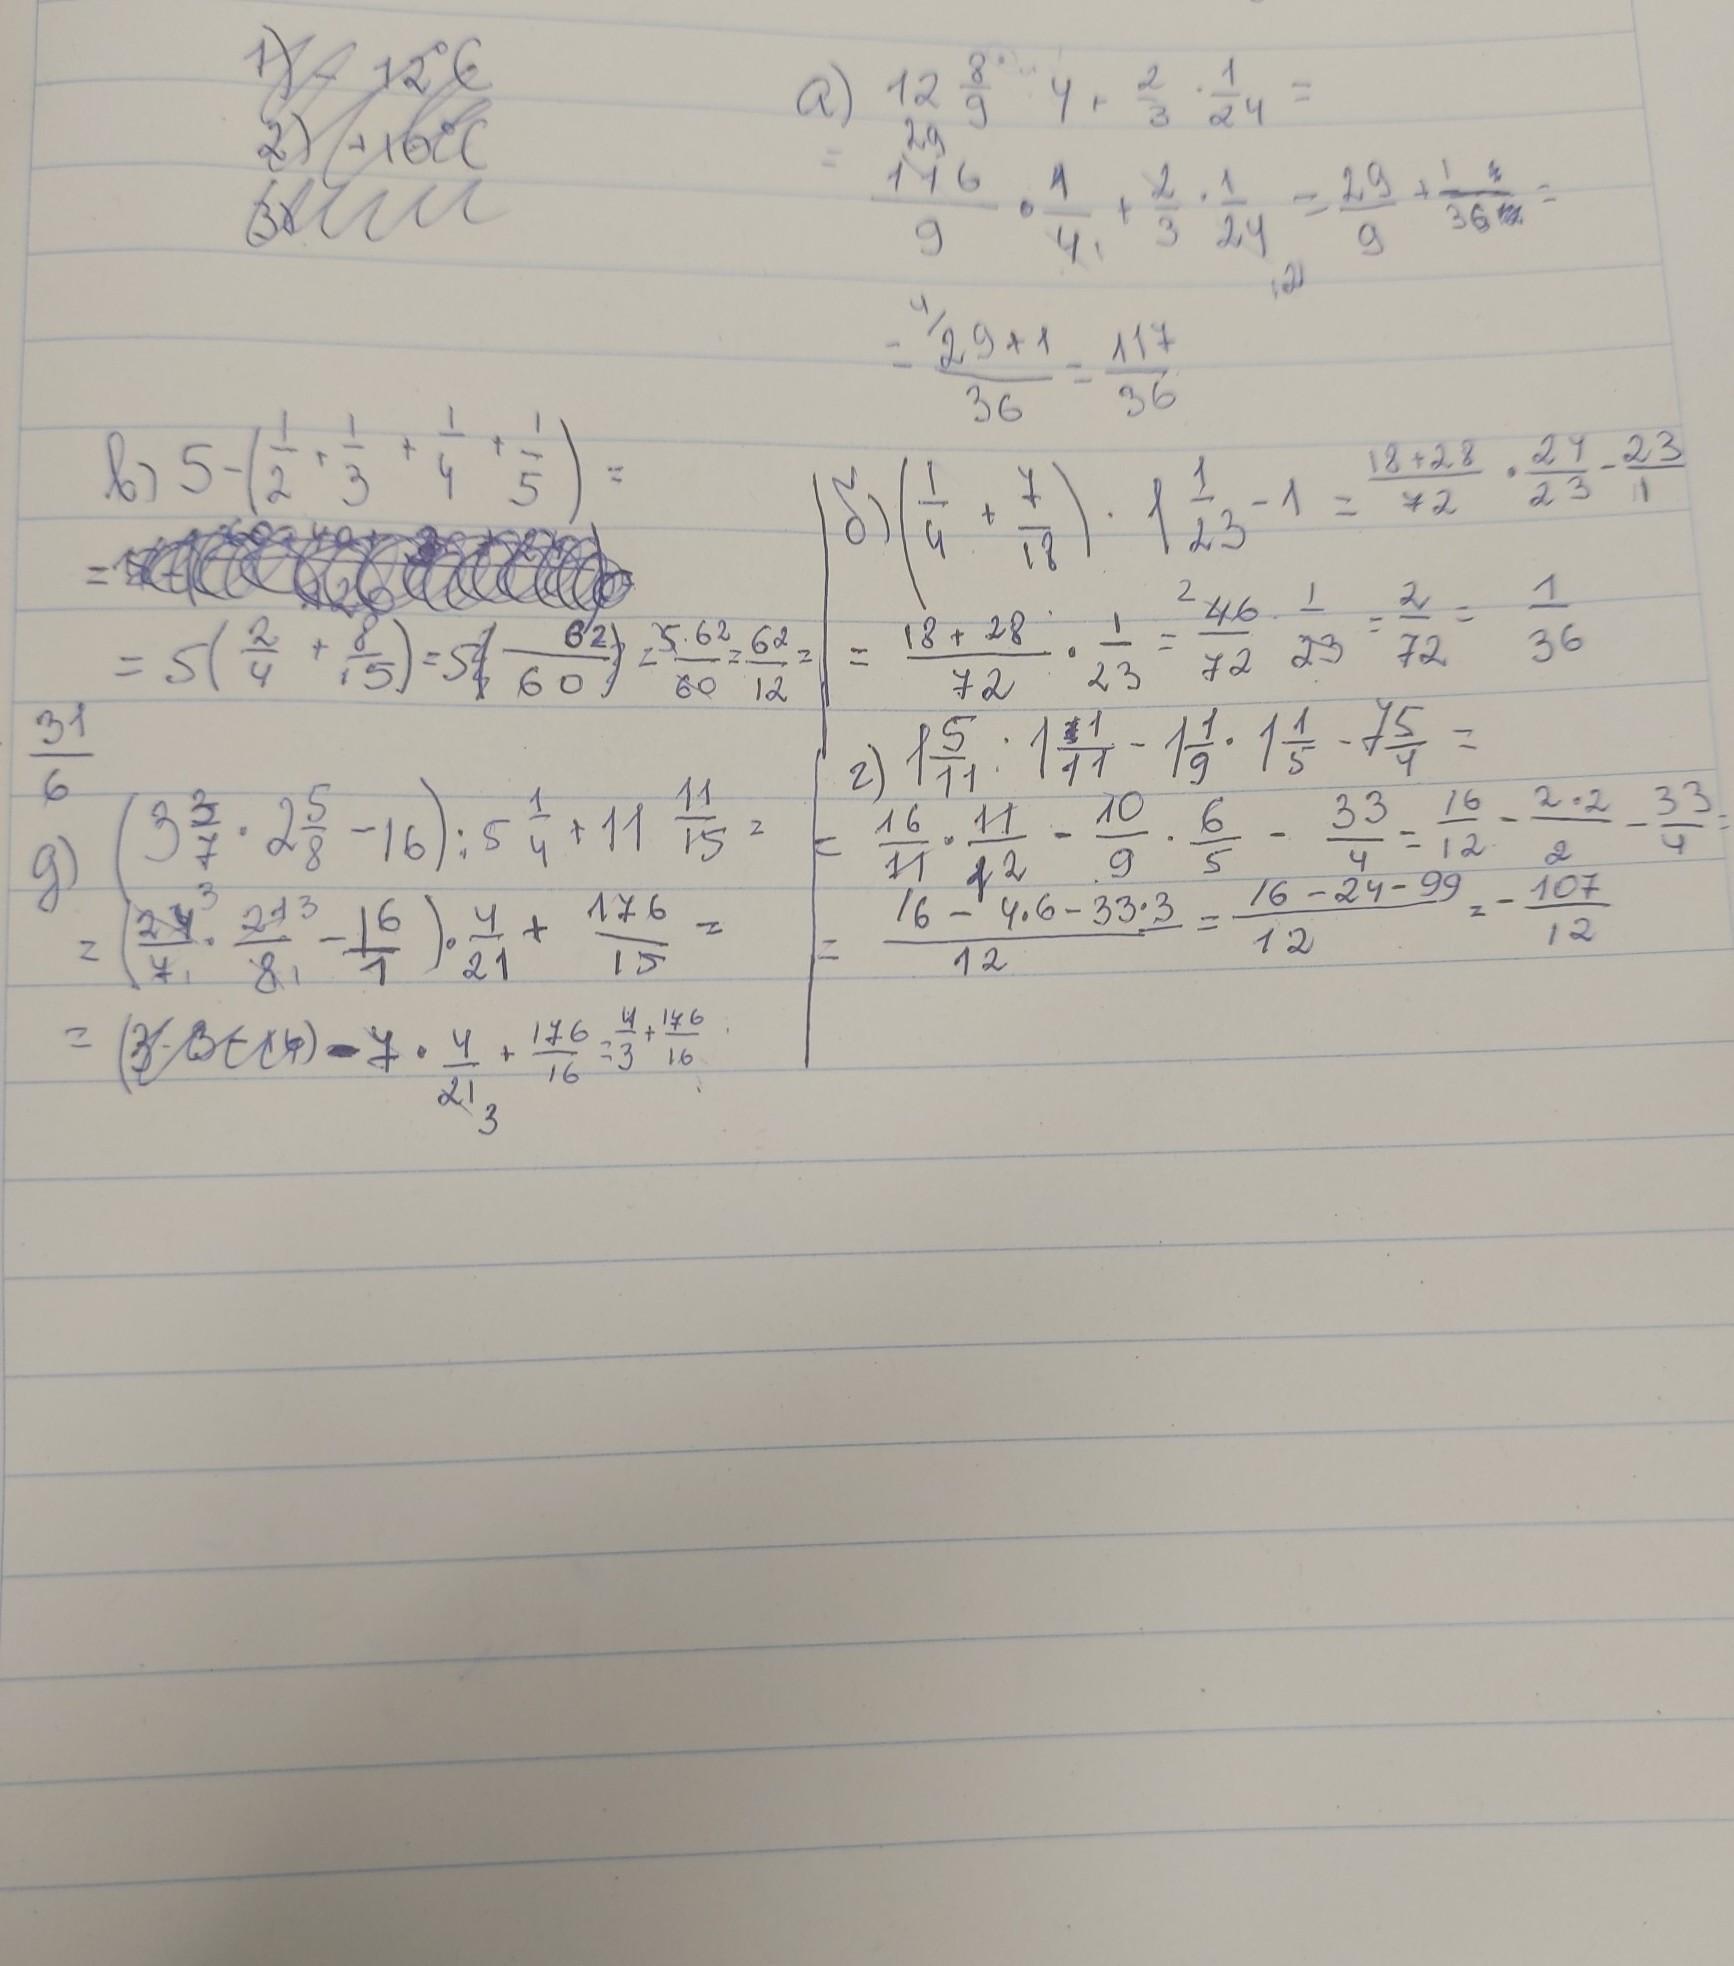 1) - 12°C
2) +16°C
3)
а) 12 8/9 : 4 + 2/3 · 1/24 =
= 116/9 · 1/4 + 2/3 · 1/24 = 29/9 + 1/36 =
= 29+1/36 = 117/36
в) 5-(1/2 + 1/3 + 1/4 + 1/5) =
= 5(2/4 + 8/15) = 5(62/60) = 5·62/60 = 62/12 =
31/6
б) (1/4 + 7/18) · 1 1/23 - 1 = 18+28/72 · 24/23 - 23/1
= 18+28/72 · 1/23 = 46/72 · 1/23 = 2/72 = 1/36
г) 1 5/11 : 1 1/11 - 1 1/9 · 1 1/5 - 7 5/4 =
= 16/11 · 11/12 - 10/9 · 6/5 - 33/4 = 16/12 - 2·2/2 - 33/4 =
= 16 - 4·6 - 33·3/12 = 16 - 24 - 99/12 = - 107/12
д) (3 3/7 · 2 5/8 - 16) : 5 1/4 + 11 11/15 =
= (24/7 · 21/8 - 16/1) · 4/21 + 176/15 =
= - 7 · 4/21 + 176/16 = 4/3 + 176/16